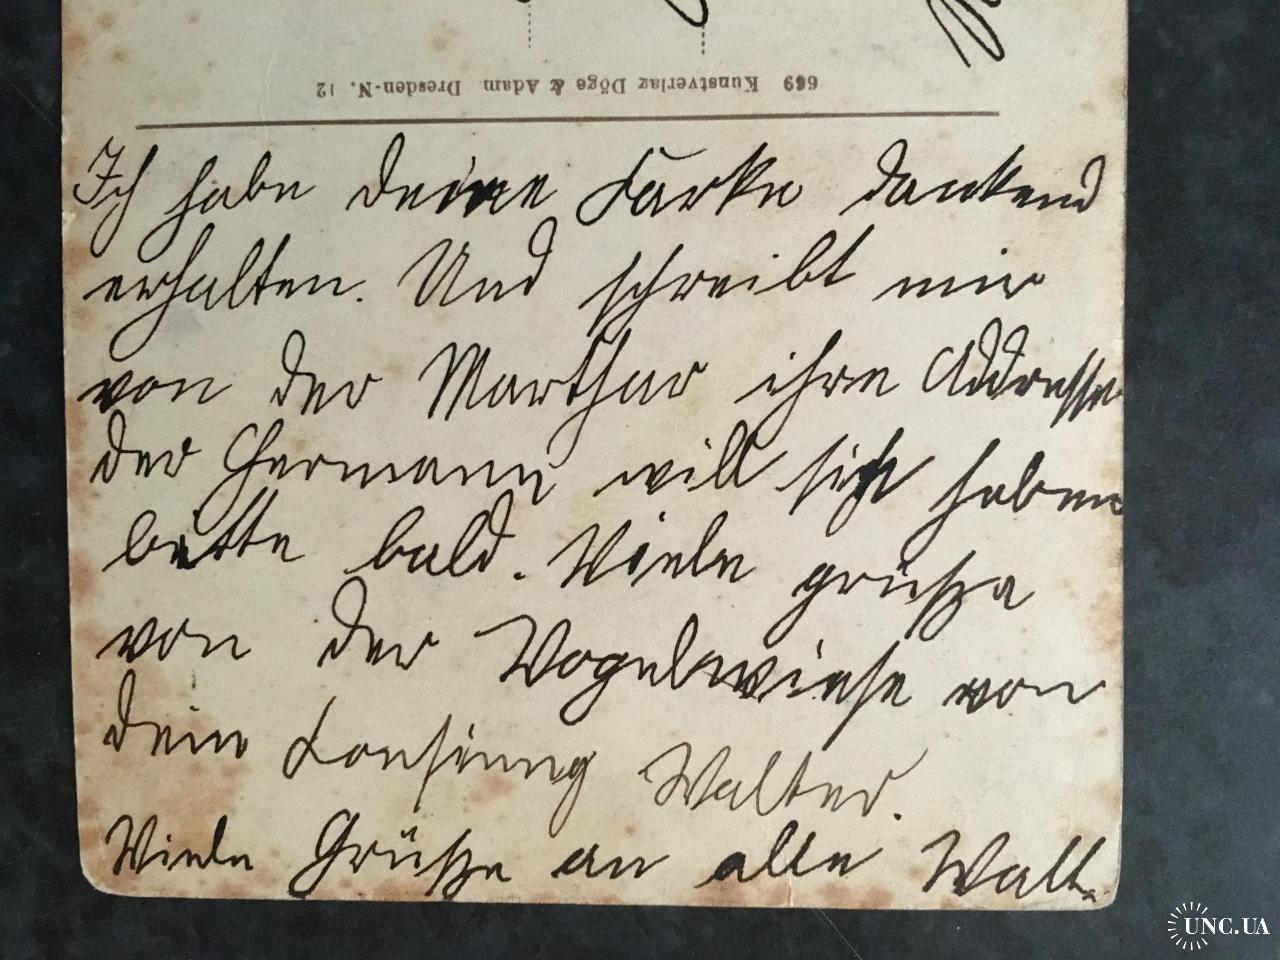 669 Kunstverlag Döge & Adam Dresden-N. 12
Ich habe deine Karte dankend
erhalten. Und schreibt mir
von der Marthar ihre Addresse
der Hermann will sich haben
bitte bald. Viele grüße
von der Vogelwiese von
dein Walter.
Viele Grüße an alle Walt.
UNC.UA